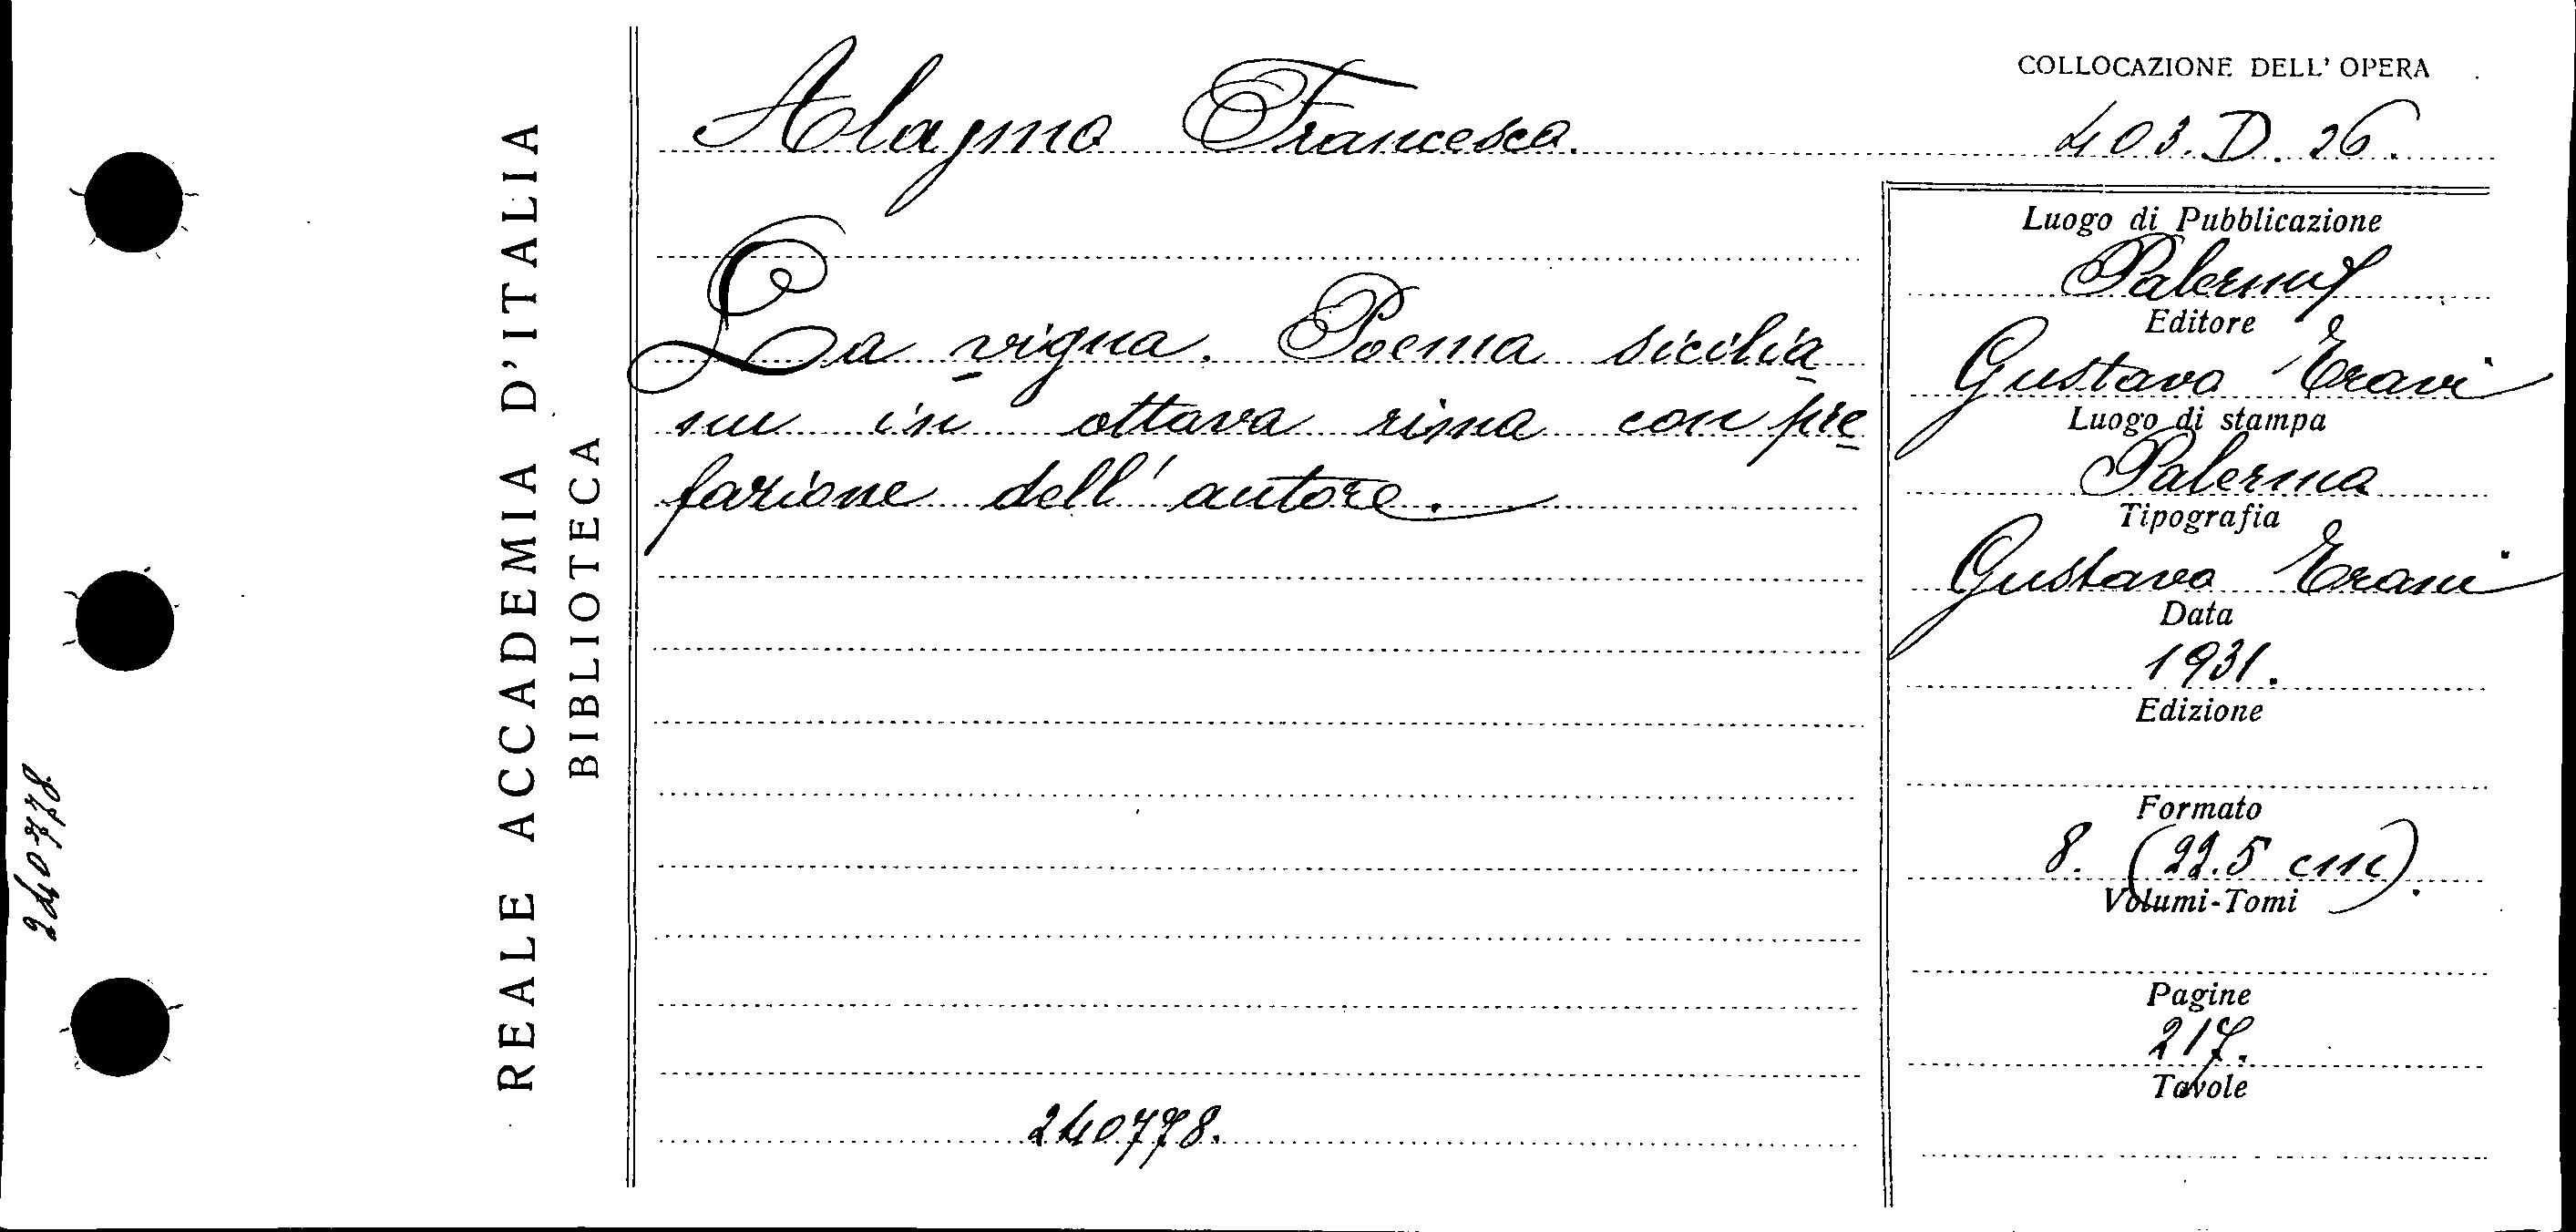 REALE ACCADEMIA D'ITALIA
BIBLIOTECA
240778.
Alagna Francesco.
La vigna. Poema sicilia
nu in ottava rima con pre
fazione dell' autore.
240778.
COLLOCAZIONE DELL' OPERA
403. D. 26.
Luogo di Pubblicazione
Palermo
Editore
Gustavo Travi
Luogo di stampa
Palermo
Tipografia
Gustavo
Data
1931.
Edizione
Formato
8. (22.5 cm).
Volumi-Tomi
Pagine
217.
Tavole